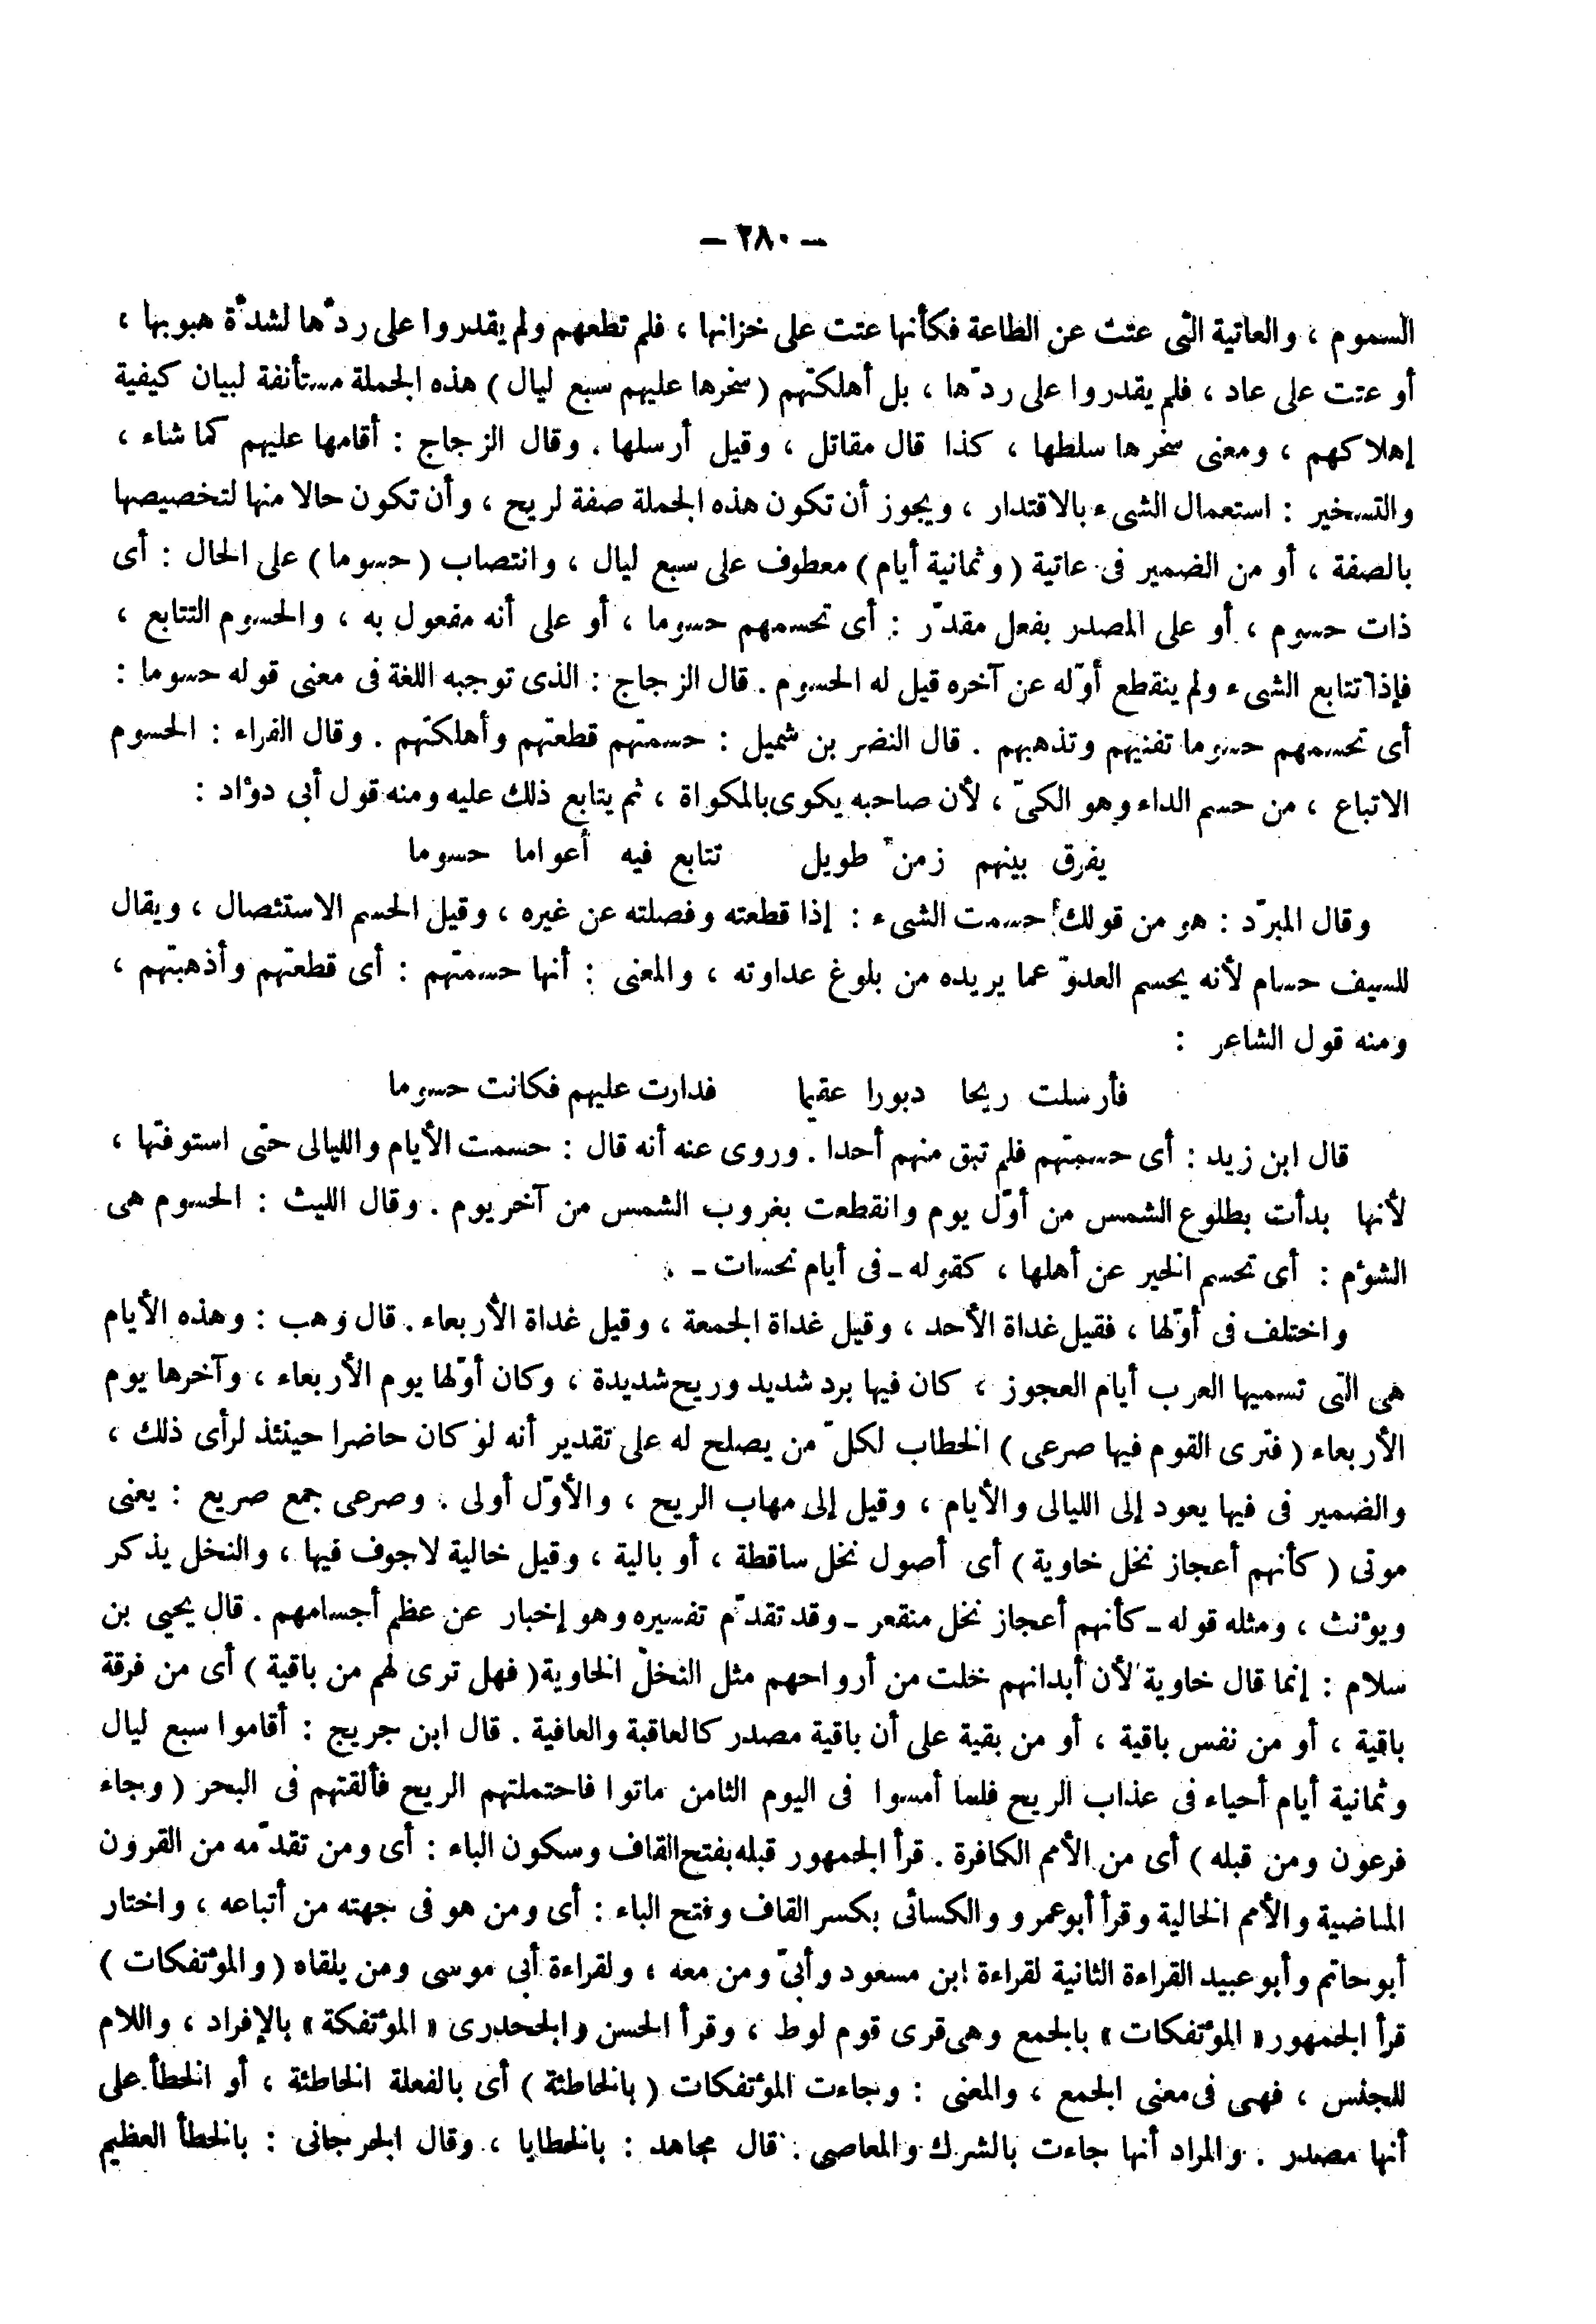 — ٢٨٠ —
السموم ، والعاتية التى عتت عن الطاعة فكأنها عتت على خزانها ، فلم تطعهم ولم يقدروا على ردّها لشدّة هبوبها ،
أو عتت على عاد ، فلم يقدروا على ردّها ، بل أهلكتهم ( سخرها عليهم سبع ليال ) هذه الجملة مستأنفة لبيان كيفية
إهلاكهم ، ومعنى سخرها سلطها ، كذا قال مقاتل ، وقيل أرسلها . وقال الزجاج : أقامها عليهم كما شاء ،
والتسخير : استعمال الشىء بالاقتدار ، ويجوز أن تكون هذه الجملة صفة لريح ، وأن تكون حالا منها لتخصيصها
بالصفة ، أو من الضمير فى عاتية ( وثمانية أيام ) معطوف على سبع ليال ، وانتصاب ( حسوما ) على الحال : أى
ذات حسوم ، أو على المصدر بفعل مقدّر : أى تحسمهم حسوما ، أو على أنه مفعول به ، والحسوم التتابع ،
فإذا تتابع الشىء ولم ينقطع أوّله عن آخره قيل له الحسوم . قال الزجاج : الذى توجبه اللغة فى معنى قوله حسوما :
أى تحسمهم حسوما تفنيهم وتذهبهم . قال النضر بن شميل : حسمتهم قطعتهم وأهلكتهم . وقال الفراء : الحسوم
الاتباع ، من حسم الداء وهو الكىّ ، لأن صاحبه يكوى بالمكواة ، ثم يتابع ذلك عليه ومنه قول أبى دؤاد :
يفرق بينهم زمن طويل تتابع فيه أعواما حسوما
وقال المبرّد : هو من قولك حسمت الشىء : إذا قطعته وفصلته عن غيره ، وقيل الحسم الاستئصال ، ويقال
للسيف حسام لأنه يحسم العدوّ عما يريده من بلوغ عداوته ، والمعنى : أنها حسمتهم : أى قطعتهم وأذهبتهم ،
ومنه قول الشاعر :
فأرسلت ريحا دبورا عقيما فدارت عليهم فكانت حسوما
قال ابن زيد : أى حسمتهم فلم تبق منهم أحدا . وروى عنه أنه قال : حسمت الأيام والليالى حتى استوفتها ،
لأنها بدأت بطلوع الشمس من أوّل يوم وانقطعت بغروب الشمس من آخر يوم . وقال الليث : الحسوم هى
الشؤم : أى تحسم الخير عن أهلها ، كقوله ـ فى أيام نحسات ـ :
واختلف فى أوّلها ، فقيل غداة الأحد ، وقيل غداة الجمعة ، وقيل غداة الأربعاء . قال وهب : وهذه الأيام
هى التى تسميها العرب أيام العجوز ، كان فيها برد شديد وريح شديدة ، وكان أوّلها يوم الأربعاء ، وآخرها يوم
الأربعاء ( فترى القوم فيها صرعى ) الخطاب لكلّ من يصلح له على تقدير أنه لو كان حاضرا حينئذ لرأى ذلك ،
والضمير فى فيها يعود إلى الليالى والأيام ، وقيل إلى مهاب الريح ، والأوّل أولى . وصرعى جمع صريع : يعنى
موتى ( كأنهم أعجاز نخل خاوية ) أى أصول نخل ساقطة ، أو بالية ، وقيل خالية لا جوف فيها ، والنخل يذكر
ويؤنث ، ومثله قوله ـ كأنهم أعجاز نخل منقعر ـ وقد تقدّم تفسيره وهو إخبار عن عظم أجسامهم . قال يحيى بن
سلام : إنما قال خاوية لأن أبدانهم خلت من أرواحهم مثل النخل الخاوية ( فهل ترى لهم من باقية ) أى من فرقة
باقية ، أو من نفس باقية ، أو من بقية على أن باقية مصدر كالعاقبة والعافية . قال ابن جريج : أقاموا سبع ليال
وثمانية أيام أحياء فى عذاب الريح فلما أمسوا فى اليوم الثامن ماتوا فاحتملتهم الريح فألقتهم فى البحر ( وجاء
فرعون ومن قبله ) أى من الأمم الكافرة . قرأ الجمهور قبله بفتح القاف وسكون الباء : أى ومن تقدّمه من القرون
الماضية والأمم الخالية وقرأ أبو عمرو والكسائى بكسر القاف وفتح الباء : أى ومن هو فى جهته من أتباعه ، واختار
أبو حاتم وأبو عبيد القراءة الثانية لقراءة ابن مسعود وأبىّ ومن معه ، ولقراءة أبى موسى ومن يلقاه ( والمؤتفكات )
قرأ الجمهور « المؤتفكات » بالجمع وهى قرى قوم لوط ، وقرأ الحسن والجحدرى « المؤتفكة » بالإفراد ، واللام
للجنس ، فهى فى معنى الجمع ، والمعنى : وجاءت المؤتفكات ( بالخاطئة ) أى بالفعلة الخاطئة ، أو الخطأ على
أنها مصدر . والمراد أنها جاءت بالشرك والمعاصى . قال مجاهد : بالخطايا ، وقال الجرجانى : بالخطأ العظيم